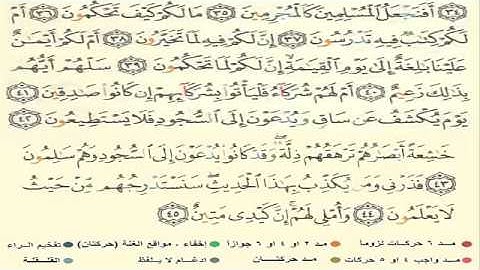 ﴿٣٤﴾ أَفَنَجْعَلُ ٱلْمُسْلِمِينَ كَٱلْمُجْرِمِينَ ﴿٣٥﴾ مَا لَكُمْ كَيْفَ تَحْكُمُونَ ﴿٣٦﴾ أَمْ
لَكُمْ كِتَٰبٌ فِيهِ تَدْرُسُونَ ﴿٣٧﴾ إِنَّ لَكُمْ فِيهِ لَمَا تَخَيَّرُونَ ﴿٣٨﴾ أَمْ لَكُمْ أَيْمَٰنٌ
عَلَيْنَا بَٰلِغَةٌ إِلَىٰ يَوْمِ ٱلْقِيَٰمَةِ إِنَّ لَكُمْ لَمَا تَحْكُمُونَ ﴿٣٩﴾ سَلْهُمْ أَيُّهُم
بِذَٰلِكَ زَعِيمٌ ﴿٤٠﴾ أَمْ لَهُمْ شُرَكَآءُ فَلْيَأْتُوا۟ بِشُرَكَآئِهِمْ إِن كَانُوا۟ صَٰدِقِينَ ﴿٤١﴾
يَوْمَ يُكْشَفُ عَن سَاقٍ وَيُدْعَوْنَ إِلَى ٱلسُّجُودِ فَلَا يَسْتَطِيعُونَ ﴿٤٢﴾
خَٰشِعَةً أَبْصَٰرُهُمْ تَرْهَقُهُمْ ذِلَّةٌ وَقَدْ كَانُوا۟ يُدْعَوْنَ إِلَى ٱلسُّجُودِ وَهُمْ سَٰلِمُونَ
﴿٤٣﴾ فَذَرْنِى وَمَن يُكَذِّبُ بِهَٰذَا ٱلْحَدِيثِ سَنَسْتَدْرِجُهُم مِّنْ حَيْثُ
لَا يَعْلَمُونَ ﴿٤٤﴾ وَأُمْلِى لَهُمْ إِنَّ كَيْدِى مَتِينٌ ﴿٤٥﴾
مد ٦ حركات لزوما مد ٢ أو ٤ أو ٦ جوازا إخفاء، مواقع الغنة (حركتان) تفخيم الراء
مد واجب ٤ أو ٥ حركات مد حركتان ادغام لا يلفظ القلقلة